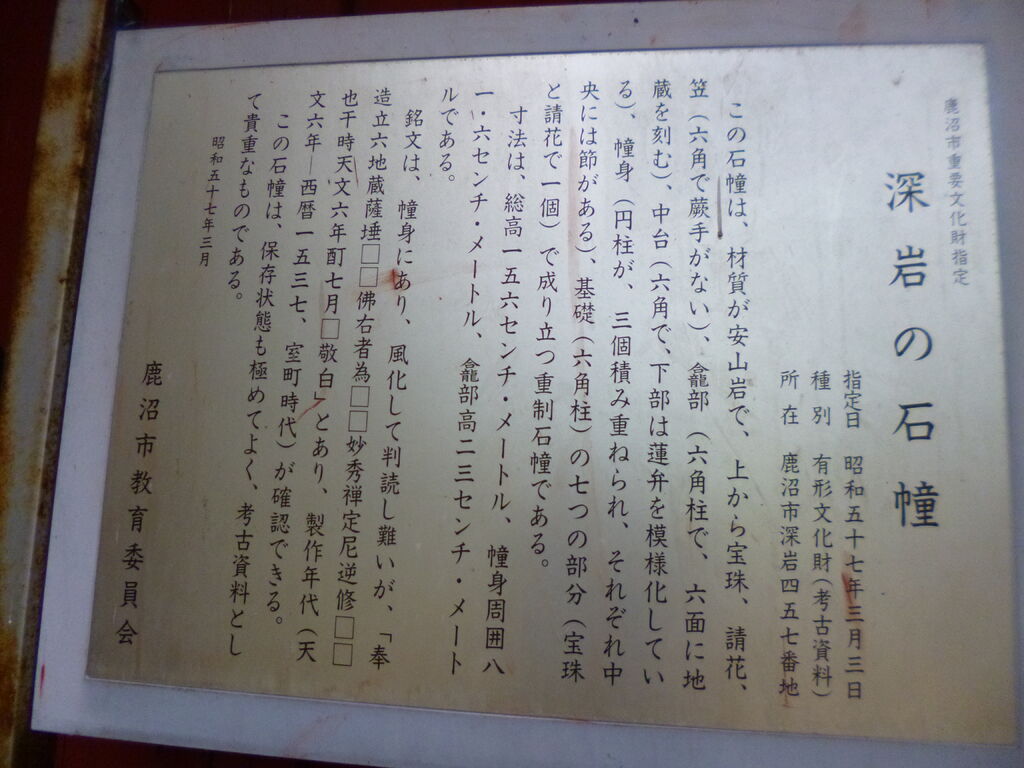 鹿沼市重要文化財指定
深岩の石幢
指定日　昭和五十七年三月三日
種　別　有形文化財（考古資料）
所　在　鹿沼市深岩四五七番地
この石幢は、材質が安山岩で、上から宝珠、請花、
笠（六角で蕨手がない）、龕部（六角柱で、六面に地
蔵を刻む）、中台（六角で、下部は蓮弁を模様化してい
る）、幢身（円柱が、三個積み重ねられ、それぞれ中
央には節がある）、基礎（六角柱）の七つの部分（宝珠
と請花で一個）で成り立つ重制石幢である。
寸法は、総高一五六センチ・メートル、幢身周囲八
一・六センチ・メートル、龕部高二三センチ・メート
ルである。
銘文は、幢身にあり、風化して判読し難いが、「奉
造立六地蔵薩埵□□佛右者為□□妙秀禅定尼逆修□□
也干時天文六年酊七月□敬白」とあり、製作年代（天
文六年―西暦一五三七、室町時代）が確認できる。
この石幢は、保存状態も極めてよく、考古資料とし
て貴重なものである。
昭和五十七年三月
鹿沼市教育委員会